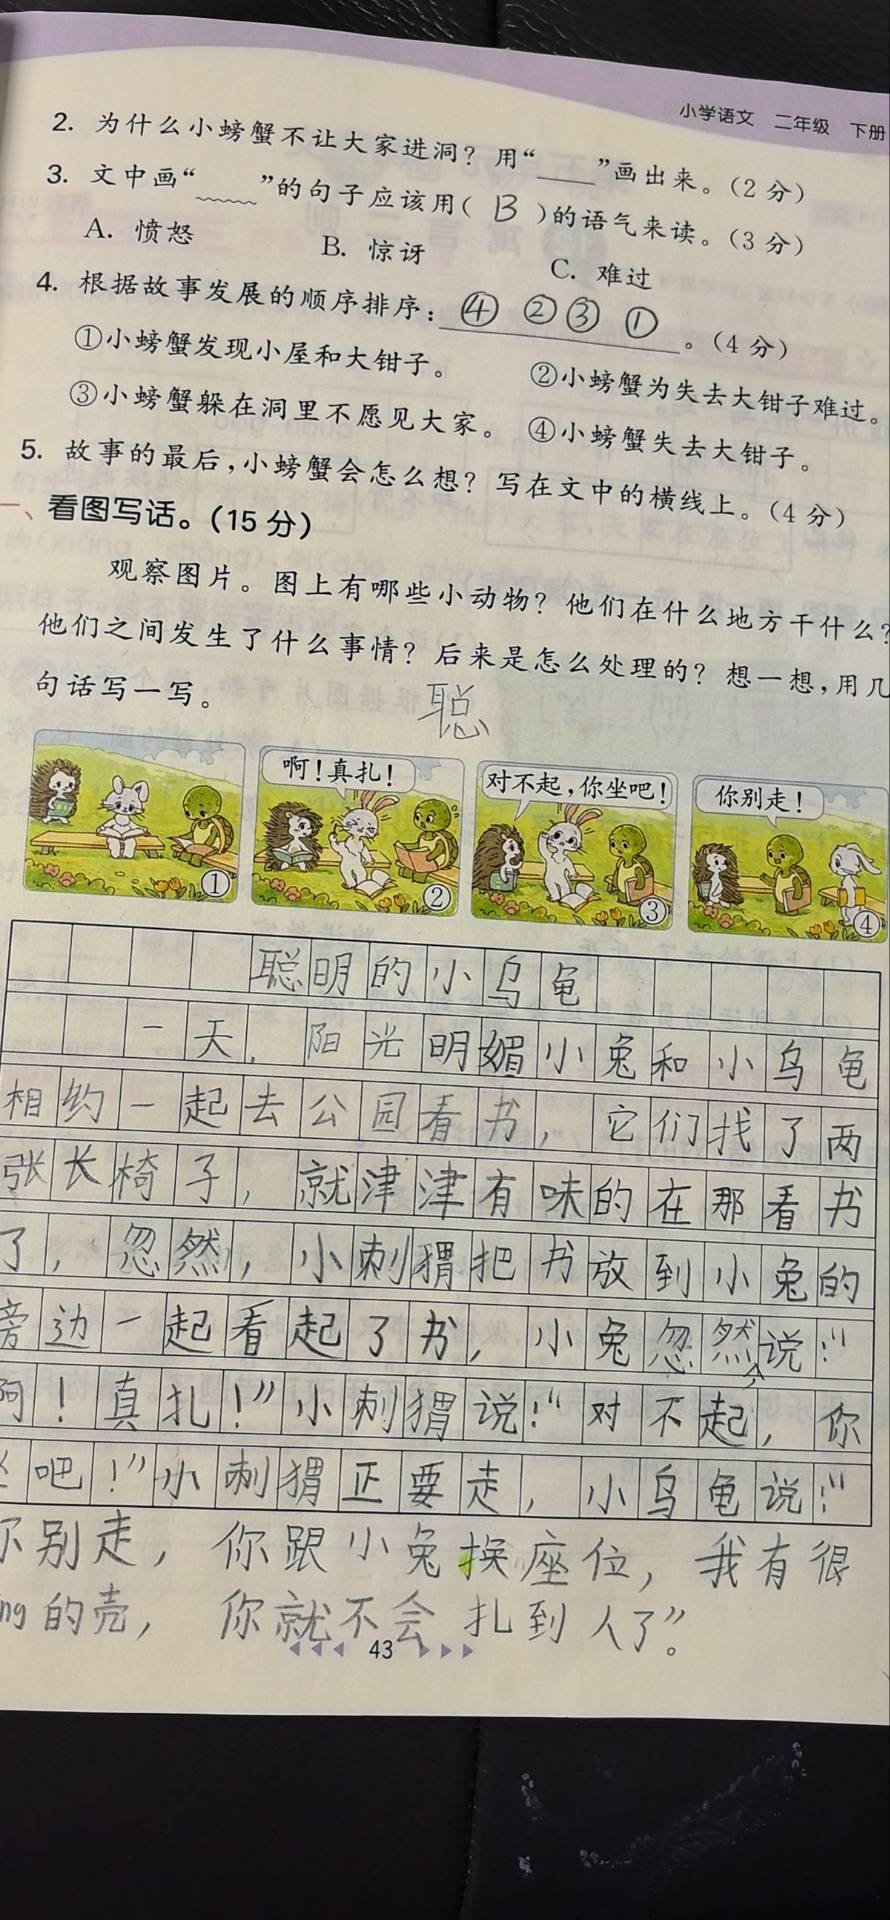 小学语文 二年级 下册
2. 为什么小螃蟹不让大家进洞？用“____”画出来。（2分）
3. 文中画“____”的句子应该用( B )的语气来读。（3分）
A. 愤怒 B. 惊讶 C. 难过
4. 根据故事发展的顺序排序：④ ② ③ ①。（4分）
①小螃蟹发现小屋和大钳子。 ②小螃蟹为失去大钳子难过。
③小螃蟹躲在洞里不愿见大家。 ④小螃蟹失去大钳子。
5. 故事的最后，小螃蟹会怎么想？写在文中的横线上。（4分）
、看图写话。（15分）
观察图片。图上有哪些小动物？他们在什么地方干什么？
他们之间发生了什么事情？后来是怎么处理的？想一想，用几
句话写一写。
聪
啊！真扎！ 对不起，你坐吧！ 你别走！
① ② ③ ④
聪明的小乌龟
一天，阳光明媚小兔和小乌龟
相约一起去公园看书，它们找了两
张长椅子，就津津有味的在那看书
了，忽然，小刺猬把书放到小兔的
旁边一起看起了书，小兔忽然说：“
啊！真扎！”小刺猬说：“对不起，你
坐吧！”小刺猬正要走，小乌龟说：“
你别走，你跟小兔换座位，我有很
ng的壳，你就不会扎到人了”。
43